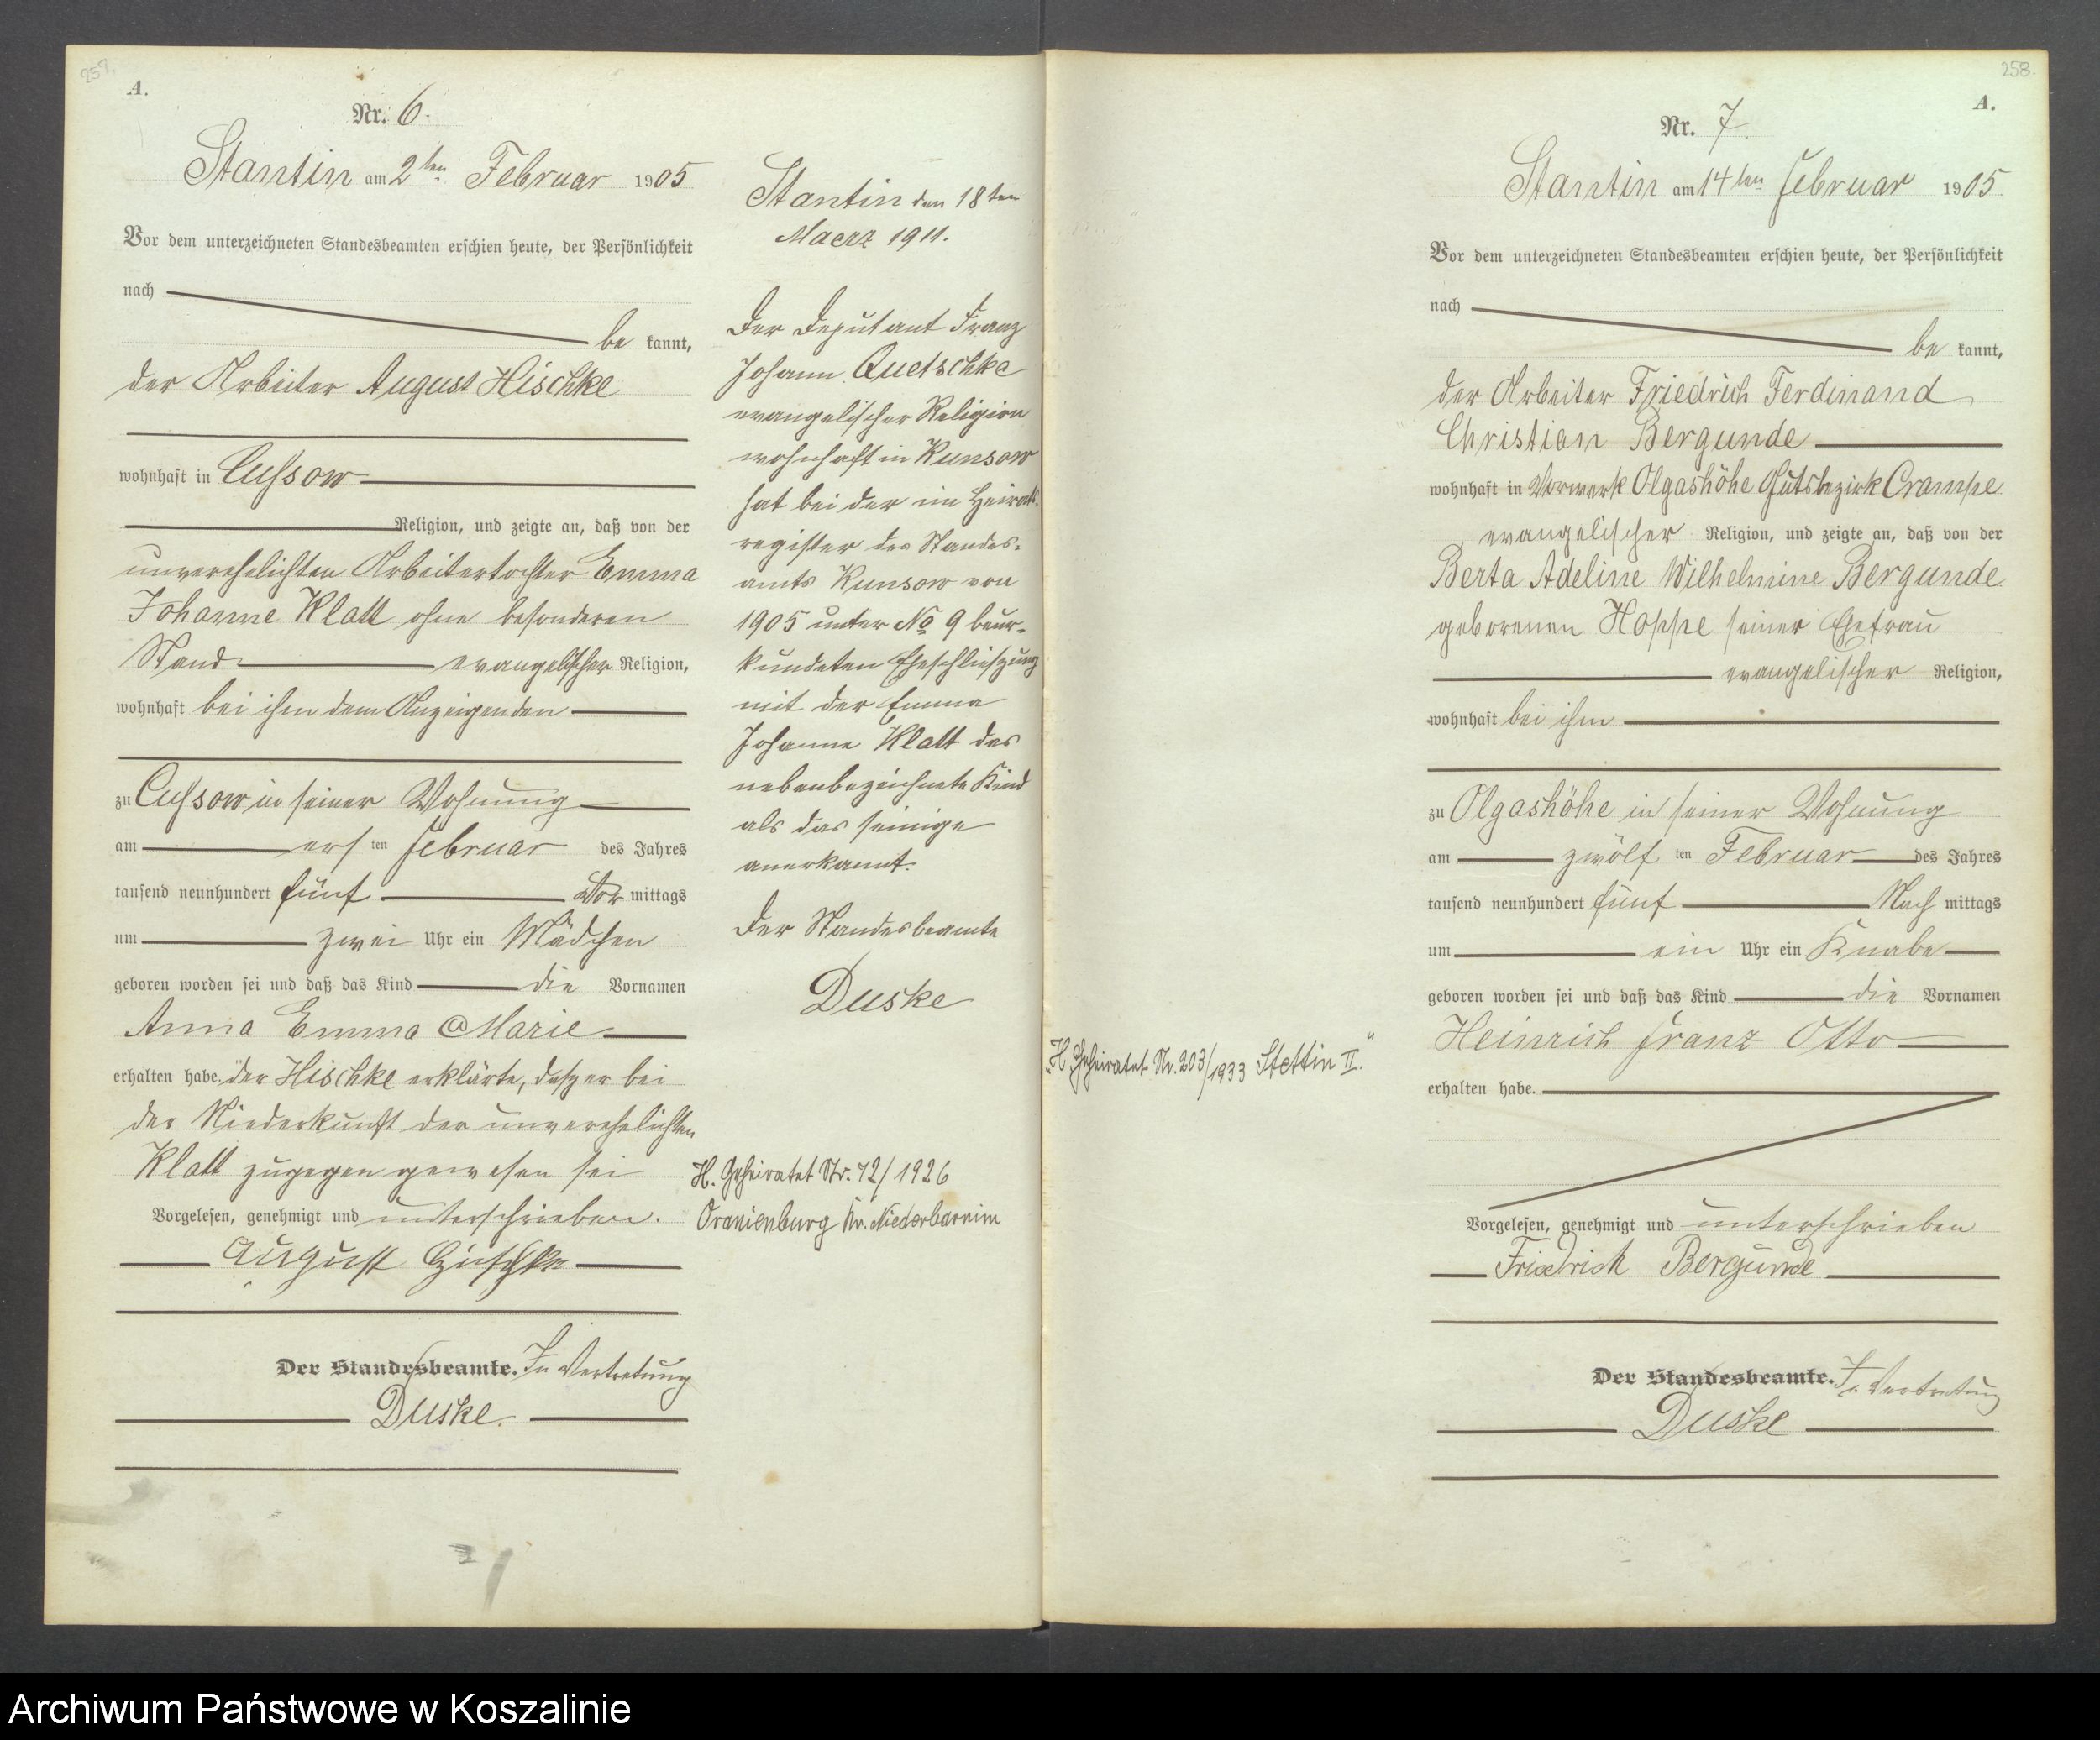 257.
A.
Nr. 6.
Stantin am 2ten Februar 1905
Vor dem unterzeichneten Standesbeamten erschien heute, der Persönlichkeit
nach
be kannt,
der Arbeiter August Hischke
wohnhaft in Cussow
Religion, und zeigte an, daß von der
unverehelichten Arbeitertochter Emma
Johanne Klatt ohne besonderen
Stand evangelischer Religion,
wohnhaft bei ihm dem Anzeigenden
zu Cussow in seiner Wohnung
am ersten Februar des Jahres
tausend neunhundert fünf Vor mittags
um zwei Uhr ein Mädchen
geboren worden sei und daß das Kind die Vornamen
Anna Emma Marie
erhalten habe. der Hischke erklärte, dasz er bei
der Niederkunft der unverehelichten
Klatt zugegen gewesen sei
Vorgelesen, genehmigt und unterschrieben.
August Hischke
Der Standesbeamte. In Vertretung
Duske.
Stantin den 18ten
Maerz 1911.
Der Deputant Franz
Johann Quetschke
evangelischer Religion
wohnhaft in Kunsow
hat bei der im Heirats-
register des Standes-
amts Kunsow von
1905 unter No 9 beur-
kundeten Eheschlieszung
mit der Emma
Johanne Klatt das
nebenbezeichnete Kind
als das seinige
anerkannt.
Der Standesbeamte
Duske
H. Geheiratet Nr. 72/1926
Oranienburg Kr. Niederbarnim
258.
A.
Nr. 7.
Stantin am 14ten Februar 1905
Vor dem unterzeichneten Standesbeamten erschien heute, der Persönlichkeit
nach
be kannt,
der Arbeiter Friedrich Ferdinand
Christian Bergunde
wohnhaft in Vorwerk Olgashöhe Gutsbezirk Crampe
evangelischer Religion, und zeigte an, daß von der
Berta Adeline Wilhelmine Bergunde
geborenen Hoppe seiner Ehefrau
evangelischer Religion,
wohnhaft bei ihm
zu Olgashöhe in seiner Wohnung
am zwölf ten Februar des Jahres
tausend neunhundert fünf Nach mittags
um ein Uhr ein Knabe
geboren worden sei und daß das Kind die Vornamen
Heinrich Franz Otto
erhalten habe.
Vorgelesen, genehmigt und unterschrieben
Friedrich Bergunde
Der Standesbeamte. In Vertretung
Duske
"H. Geheiratet Nr. 203/1933 Stettin II."
Archiwum Państwowe w Koszalinie